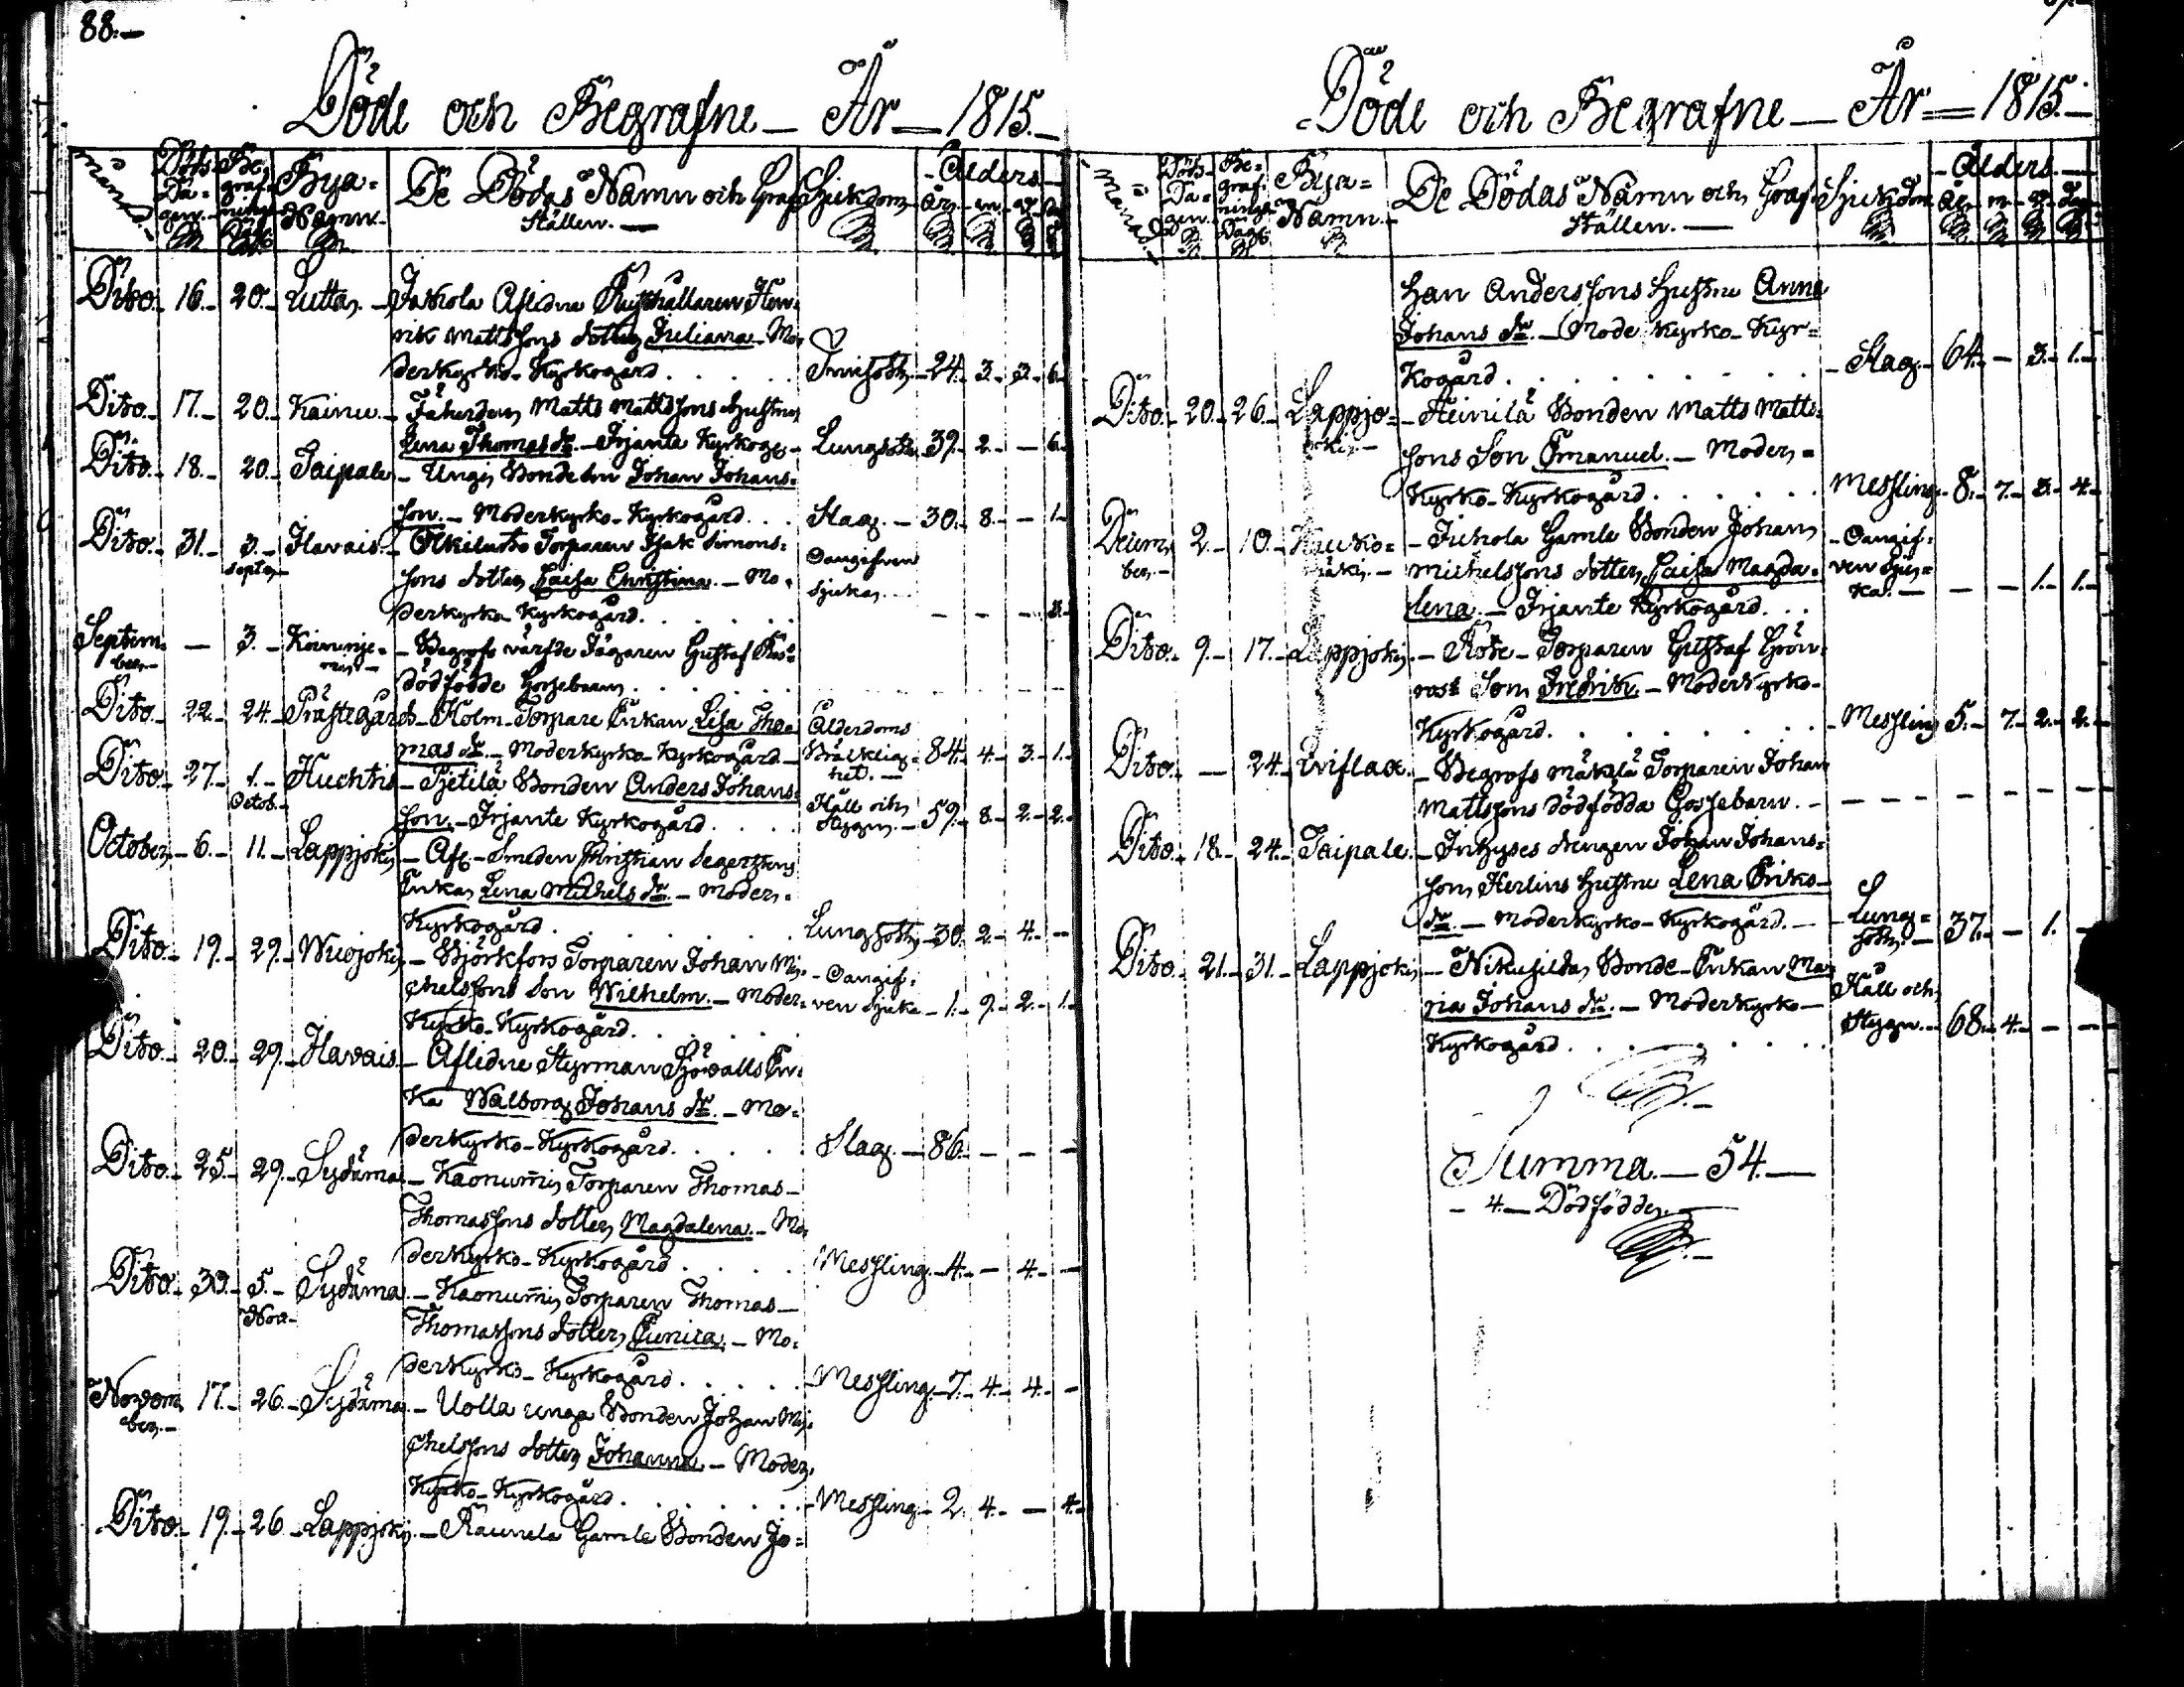 88.-
Döde och Begrafne - År - 1815.-
Månad.-
Döds-
Da-
gen.-
Be-
graf-
nings
Dag.
Bya-
Namn.-
De Dödas Namn och Graf
Ställen.-
Sjukdom.
Ålders-
år.-
m.-
Dito.- 16.- 20.- Lutta.- Jaskola Aflidne Rusthållaren Hen-
rik Mattssons dotter Juliana - Mo-
derkyrko-Kyrkogård . . . . . Tvinsot - 24.- 3.- 3.- 6.-
Dito.- 17.- 20.- Kainu.- Fäherden Matts Mattssons Hustru
Lena Thomas dr.- Irjante Kyrkog.- Lungsot 39.- 2.- - 6.-
Dito.- 18.- 20.- Taipale - Ungi Bonde Son Johan Johans-
son.- Moderkyrko-Kyrkogård . . . Slag.- 30.- 8.- - 1.-
Dito.- 31.- 3.- Septe.- Ilavais.- Olkiluoto Torparen Isak Simons-
sons dotter Caisa Christina.- Mo-
derkyrko Kyrkogård . . . . . Oangifven
Sjuka.- - - - 3.-
Septem-
ber.- - 3.- - Begrofs Gustaf
dödfödde Gossebarn . . . . .
Dito.- 22.- 24.- Prästegård.- Holm-Torpare Enkan Lisa Tho-
mas dr.- Moderkyrko-Kyrkogård.- Ålderdoms
Bräcklig-
het.- 84.- 4.- 3.- 1.-
Dito.- 27.- 1.- Octob.- Huchtis - Pietilä Bonden Anders Johans-
son.- Irjante Kyrkogård . . . . Håll och
Stygn.- 59.- 8.- 2.- 2.-
October.- 6.- 11.- Lappjoki - Afl.- Smeden Christian Segerstens
Enka Lena Michels dr.- Moder-
Kyrkogård . . . . . Lungsot - 30.- 2.- 4.- -
Dito.- 19.- 29.- Wuojoki - Björkfors Torparen Johan Mi-
chelssons Son Wilhelm.- Moder-
Kyrko-Kyrkogård . . . . . Oangif-
ven Sjuka - 1.- 9.- 2.- 1.-
Dito.- 20.- 29.- Ilavais.- Aflidne Styrman Sjövalls En-
ka Walborg Johans dr.- Mo-
derkyrko-Kyrkogård . . . . . Slag.- 86.- - - -
Dito.- 25.- 29.- Sydänma - Kaonummi Torparen Thomas-
Thomassons dotter Magdalena.- Mo-
derkyrko-Kyrkogård . . . . Messling.- 4.- - 4.- -
Dito.- 30.- 5.- Nov.- Sydänma.- Kaonummi Torparen Thomas-
Thomassons dotter Eunica.- Mo-
derkyrko-Kyrkogård . . . . . Messling.- 7.- 4.- 4.- -
Novem-
ber.- 17.- 26.- Sydänma.- Uolla unga Bonden Johan Mi-
chelssons dotter Johanna - Moder-
Kyrko-Kyrkogård . . . . . Messling.- 2.- 4.- - 4.-
Dito.- 19.- 26.- Lappjoki.- Raunela Gamle Bonden Jo-
Döde och Begrafne - År - 1815.-
Månad.-
Döds-
Da-
gen.-
Be-
graf-
nings
Dag.
Bya-
Namn.-
De Dödas Namn och Graf-
Ställen.-
Sjukdom
Ålders.-
år.-
m.-
han Anderssons Hustru Anna
Johans dr.- Mode kyrko-Kyr-
kogård . . . . . - Slag.- 64.- - 3.- 1.-
Dito.- 20.- 26.- Lappjo-
ki.- - Heinilä Bonden Matts Matts-
sons Son Emanuel.- Moder-
Kyrko-Kyrkogård . . . . . Messling.- 8.- 7.- 3.- 4.-
Decem-
ber.- 2.- 10.- - Gamle Bonden Johan
Michelssons dotter Caisa Magda-
lena.- Irjante Kyrkogård . . . - Oangif-
ven Sju-
ka.- - - 1.- 1.-
Dito.- 9.- 17.- Lappjoki.- Rote-Torparen Gustaf Grön-
roos Son Fredrik.- Moderkyrko-
Kyrkogård . . . . . - Messling 5.- 7.- 2.- 2.-
Dito.- - 24.- Euiflax.- Begrofs Mäkilä Torparen Johan
Mattssons dödfödda Gossebarn.- - - - - -
Dito.- 18.- 24.- Taipale.- Inhyses drengen Johan Johans-
son Herlins Hustru Lena Eriks-
dr.- Moderkyrko-Kyrkogård.- - Lung-
sot.- 37.- - 1. -
Dito.- 21.- 31.- Lappjoki - Bonde-Enkan Ma-
ria Johans dr.- Moderkyrko-
Kyrkogård . . . . . Håll och
Stygn.- 68.- 4.- - -
Summa.- 54.-
- 4.- Dödfödde.-